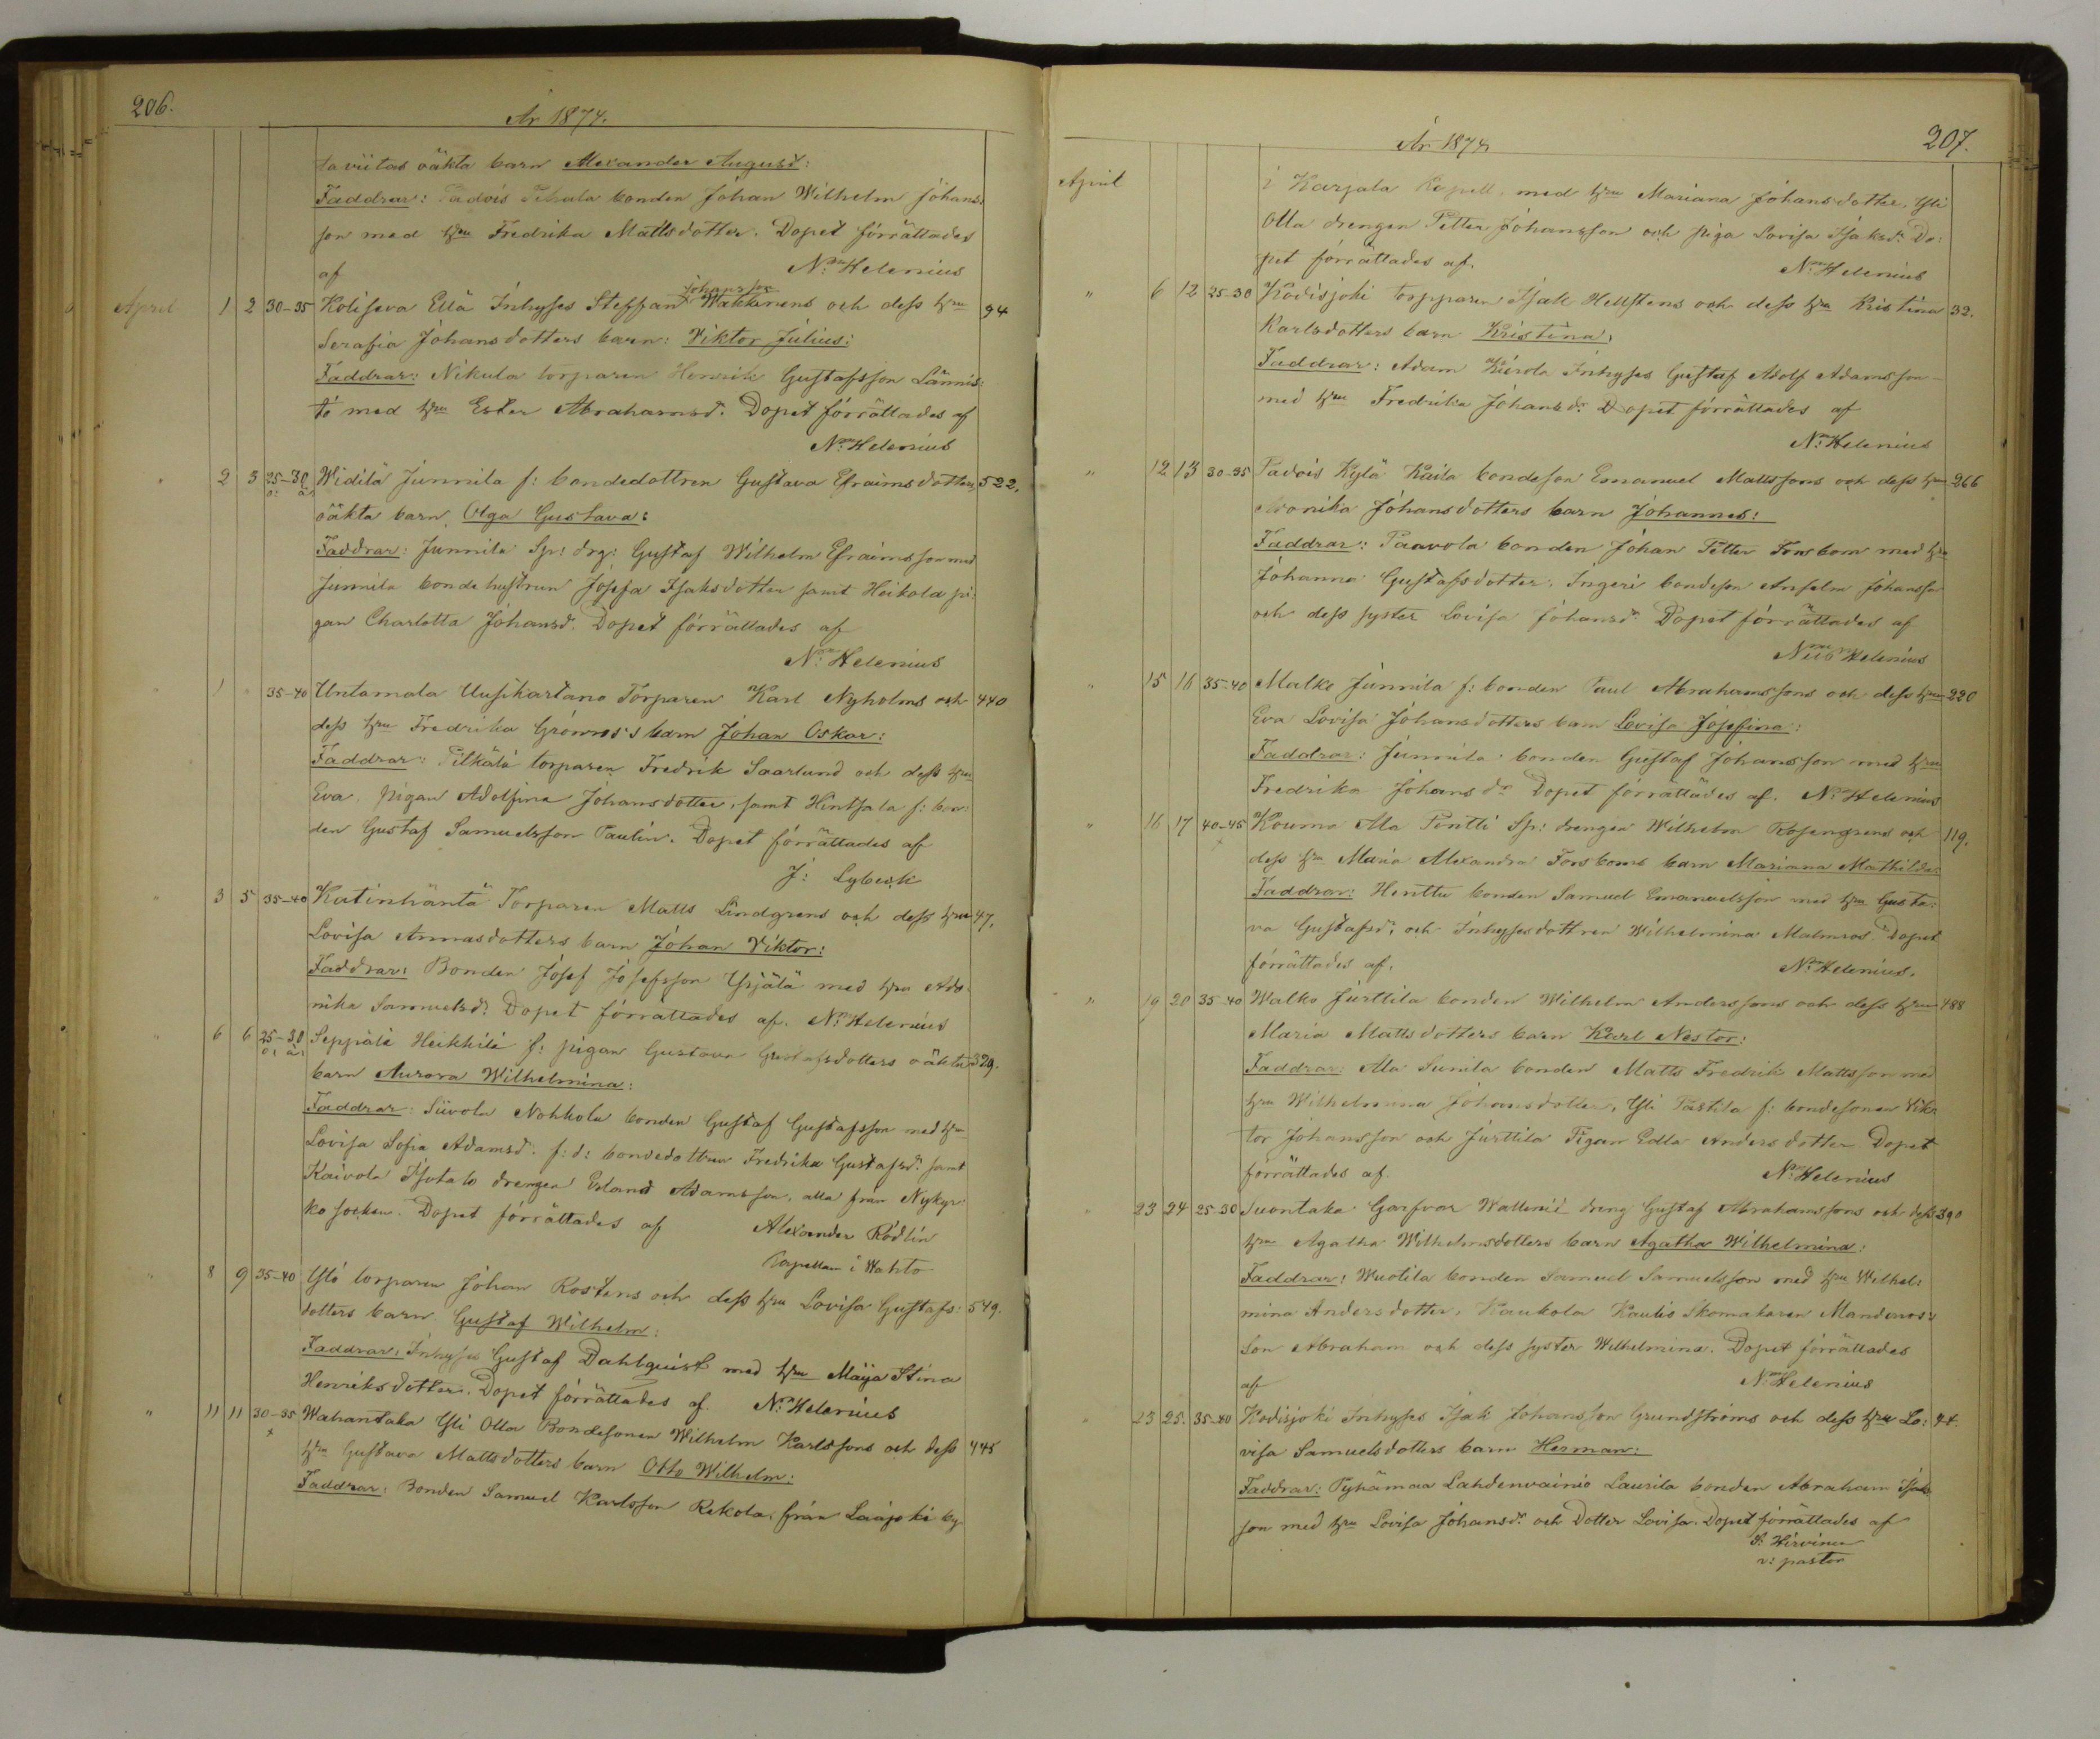 206.
År 1874.
taviitas oäkta barn Alexander August:
Faddrar: Padvois Tihala bonden Johan Wilhelm Johans:
son med hru Fredrika Mattsdotter. Dopet förrättades
af N:m Helenius
April 1 2 30-35 Koliseva Ellä Inhyses Steffan Johansson Wakkinens och dess hru 94
Serafia Johansdotters barn: Viktor Julius:
Faddrar: Nikula torparen Henrik Gustafsson Lännis:
tö med hru Ester Abrahamsdr. Dopet förrättades af
N:m Helenius
" 2 3 25-30 o: äg: Widilä Junnila f: bondedottren Gustava Efraimsdotters 522.
oäkta barn Olga Gustava:
Faddrar: Junnila Sp: drg: Gustaf Wilhelm Efraimsson med
Junnila bondehustrun Josefa Isaksdotter samt Heikola pi:
gan Charlotta Johansdr. Dopet förrättades af
N:m Helenius
" 1 " 35-40 Untamala Uusikartano Torparen Karl Nyholms och 440
dess hru Fredrika Grönroos's barn Johan Oskar:
Faddrar: Pilkälä torparen Fredrik Saarlund och dess hru
Eva, pigan Adolfina Johansdotter, samt Hintsala f: bon:
den Gustaf Samuelsson Paulin. Dopet förrättades af
J: Lybeck
" 3 5 35-40 Katinhäntä Torparen Matts Lindgrens och dess hru 47.
Lovisa Annasdotters barn Johan Viktor:
Faddrar: Bonden Josef Josefsson Yrjälä med hru Ado:
nika Samuelsd: Dopet förrättades af. N:m Helenius
" 6 6 25-30 o: äg: Seppälä Heikkilä f: pigan Gustava Gustafsdotters oäkta 329.
barn Aurora Wilhelmina:
Faddrar: Siivola Nohkola bonden Gustaf Gustafsson med hru
Lovisa Sofia Adamsd: f: d: bondedottren Fredrika Gustafsdr: samt
Kaivola Isotalo drengen Erland Adamsson, alla från Nykyr
ko socken. Dopet förrättades af Alexander Rödlin
Capellan i Wahto
" 8 9 35-40 Ylö torparen Johan Rostens och dess hru Lovisa Gustafs: 549.
dotters barn Gustaf Wilhelm:
Faddrar: Inhyses Gustaf Dahlquist med hru Maija Stina
Henriksdotter. Dopet förrättades af. N:m Helenius
" 11 11 30-35 x Wahantaka Yli Olla Bondesonen Wilhelm Karlssons och dess 445
hru Gustava Mattsdotters barn Otto Wilhelm:
Faddrar: Bonden Samuel Karlsson Rekola från Laajoki by
207.
År 1874
April i Karjala Kapell med hru Mariana Johansdotter, Yli
Olla drengen Petter Johansson och piga Lovisa Isaksdr. Do:
pet förrättades af. N:m Helenius
" 6 12 25-30 Kodisjoki torpparen Isak Hellstens och dess hru Kristina 32.
Karlsdotters barn Kristina:
Faddrar: Adam Inhyses Gustaf Adolf Adamsson
med hru Fredrika Johansdr. Dopet förrättades af
N:m Helenius
" 12 13 30-35 Padvois Kylä Kaila bondeson Emanuel Mattssons och dess hru 266
Johansdotters barn Johannes:
Faddrar: Paavola bonden Johan Petter Forsbom med hru
Johanna Gustafsdotter. Ingeri bondeson Anselm Johansson
och dess syster Lovisa Johansdr. Dopet förrättades af
Nils Helenius
" 15 16 35-40 Malko Junnila f: bonden Paul Abrahamssons och dess hru 220
Eva Lovisa Johansdotters barn Lovisa Josefina:
Faddrar: Junnila bonden Gustaf Johansson med hru
Fredrika Johansdr Dopet förrättades af. N:m Helenius
" 16 17 40-45 x Kouma Ala Pontti Sp: drengen Wilhelm Rosengrens och 119.
dess hru Maria Alexandra Forsboms barn Mariana Mathilda:
Faddrar: Henttu bonden Samuel Emanuelsson med hru Gusta:
va Gustafsdr. och Inhysesdottren Wilhelmina Malmros. Dopet
förrättades af. N:m Helenius.
" 19 20 35-40 Walko Jurttila bonden Wilhelm Anderssons och dess hru 488
Maria Mattsdotters barn Karl Nestor:
Faddrar: Ala Sunila bonden Matts Fredrik Mattsson med
hru Wilhelmina Johansdotter, Yli Pastila f: bondesonen Vik
tor Johansson och Jurttila Pigan Edla Andersdotter Dopet
förrättades af. N:m Helenius
" 23 24 25-30 Suontaka Garfvar Wallenii dreng Gustaf Abrahamssons och dess 390
hru Agatha Wilhelmsdotters barn Agatha Wilhelmina:
Faddrar: Wuotila bonden Samuel Samuelsson med hru Wilhel:
mina Andersdotter, Kaukola Kaulis Skomakaren Manderoos:s
Son Abraham och dess syster Wilhelmina. Dopet förrättades
af N:m Helenius
" 23 25. 35-40 Kodisjoki Inhyses Isak Johansson Grundströms och dess hru Lo: 44.
visa Samuelsdotters barn Herman:
Faddrar: Pyhämaa Lahdenvainio Laurila bonden Abraham Isaks
son med hru Lovisa Johansdr. och Dotter Lovisa. Dopet förrättades af
S: Hirvinen
v: pastor